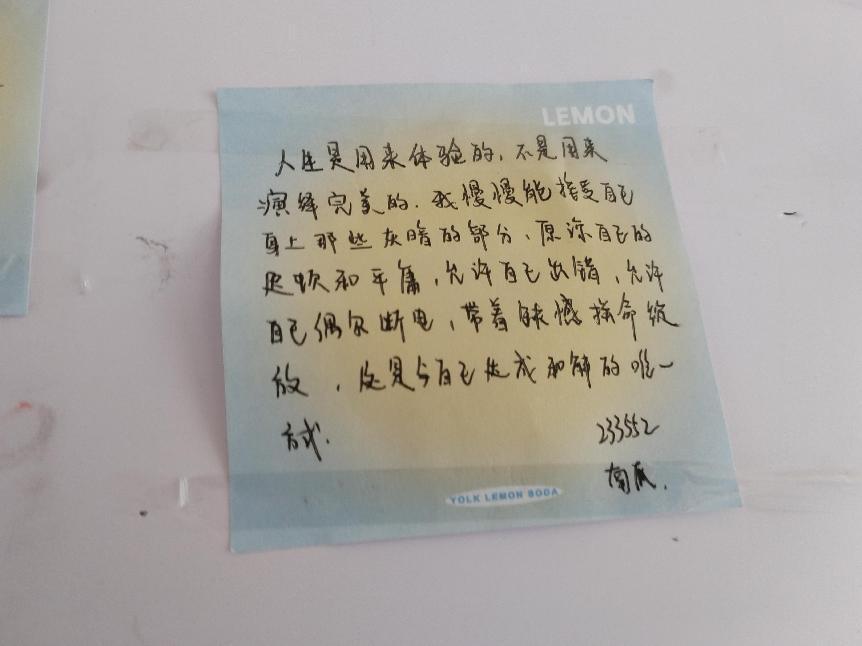 LEMON
人生是用来体验的，不是用来
演绎完美的．我慢慢能接受自己
身上那些灰暗的部分，原谅自己的
迟钝和平庸，允许自己出错，允许
自己偶尔断电，带着缺憾拼命绽
放，这是与自己达成和解的唯一
方式．
233552
YOLK LEMON SODA